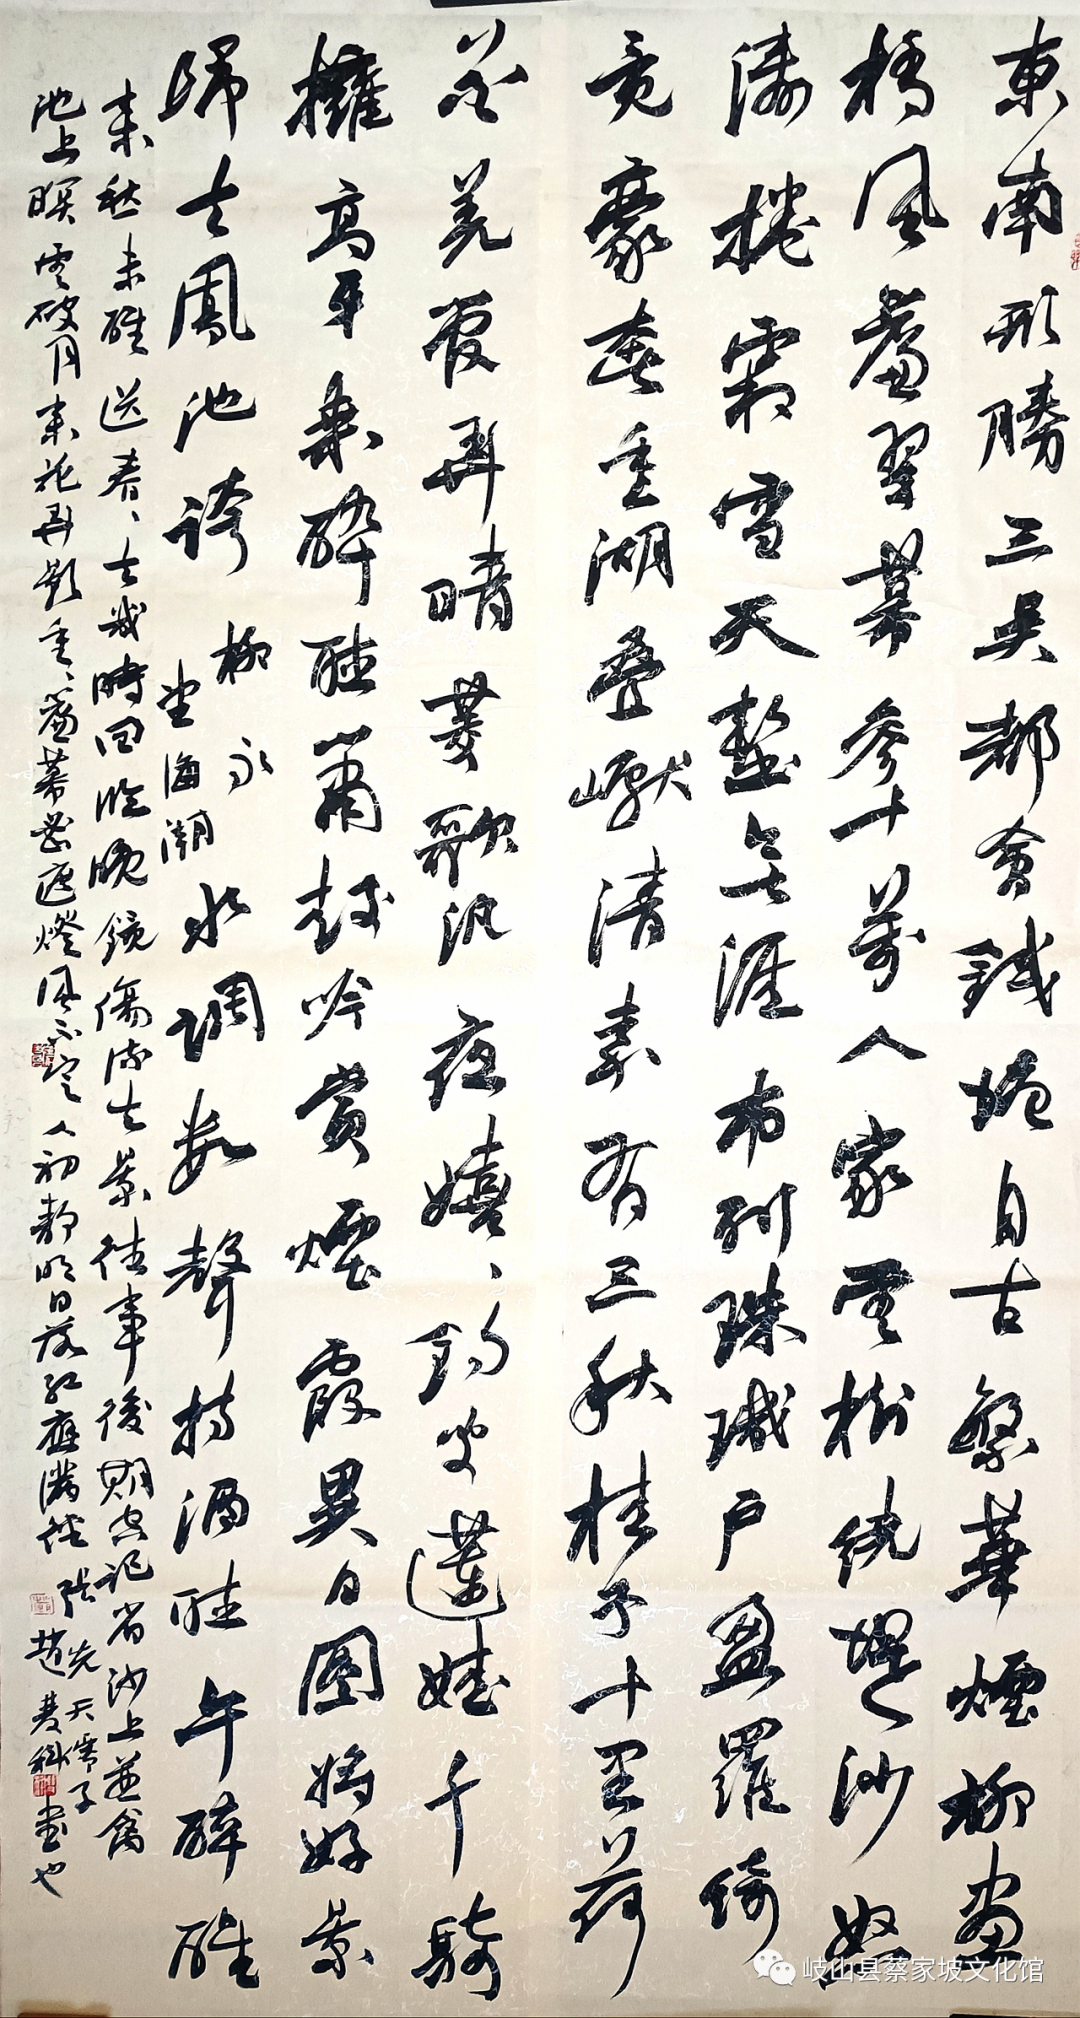 東南形勝三吳都會錢塘自古繁華煙柳畫
橋風簾翠幕參十萬人家雲樹繞堤沙怒
濤捲霜雪天塹無涯市列珠璣戶盈羅綺
竞豪奢重湖疊巘清嘉有三秋桂子十里荷
花羌管弄晴菱歌汎夜嬉、釣叟蓮娃千騎
擁高牙乘醉聽簫鼓吟賞煙霞異日圖將好景
歸去鳳池誇
柳永
望海潮
水調數聲持酒聽午醉醒
來愁未醒送春、去幾時回臨晚鏡傷流去景往事後期空記省沙上並禽
池上暝雲破月來花弄影重、簾幕密遮燈風不定人初靜明日落紅應滿徑
張先
天儒子
趙科書也
岐山县蔡家坡文化馆